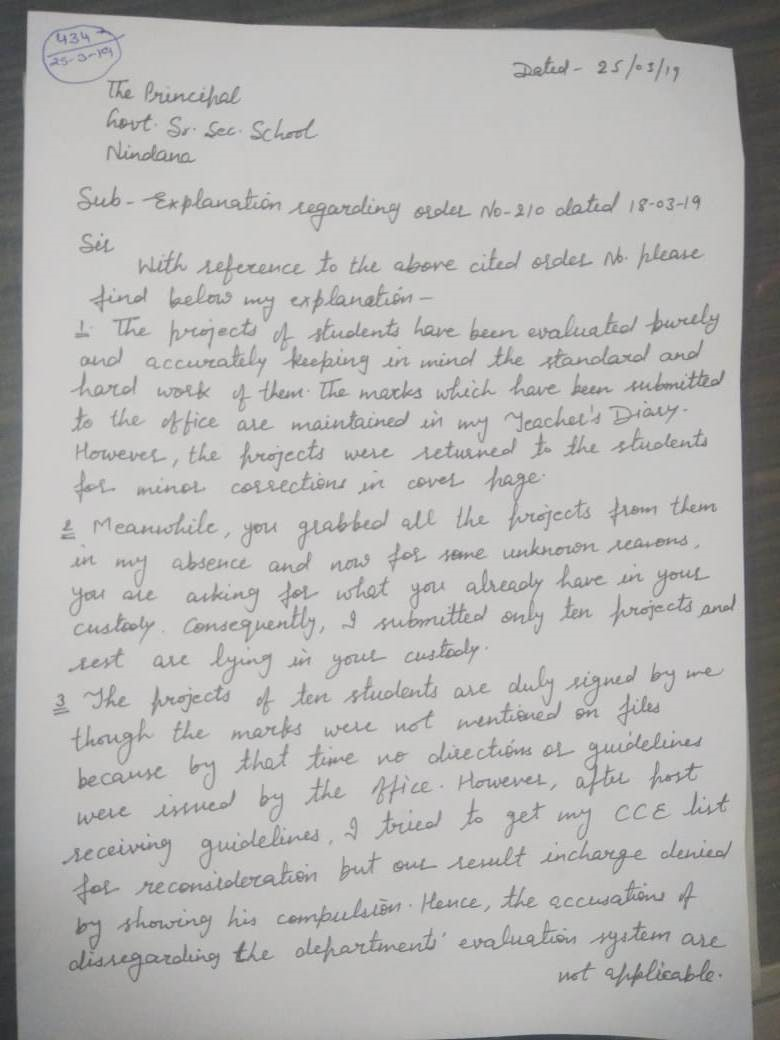 434
25-3-19
Dated- 25/03/19
The Principal
Govt. Sr. Sec. School
Nindana
Sub- Explanation regarding order No-210 dated 18-03-19
Sir
With reference to the above cited order No. please
find below my explanation-
1. The projects of students have been evaluated purely
and accurately keeping in mind the standard and
hard work of them. The marks which have been submitted
to the office are maintained in my Teacher's Diary.
However, the projects were returned to the students
for minor corrections in cover page.
2 Meanwhile, you grabbed all the projects from them
in my absence and now for some unknown reasons,
you are asking for what you already have in your
custody. Consequently, I submitted only ten projects and
rest are lying in your custody.
3 The projects of ten students are duly signed by me
though the marks were not mentioned on files
because by that time no directions or guidelines
were issued by the office. However, after post
receiving guidelines, I tried to get my CCE list
for reconsideration but our result incharge denied
by showing his compulsion. Hence, the accusations of
disregarding the departments' evaluation system are
not applicable.